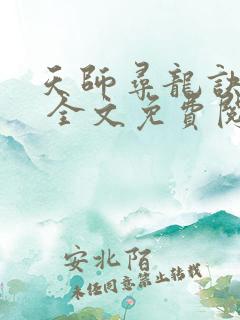 天師尋龍訣
全文免費閱
安北陌
未经同意禁止转载